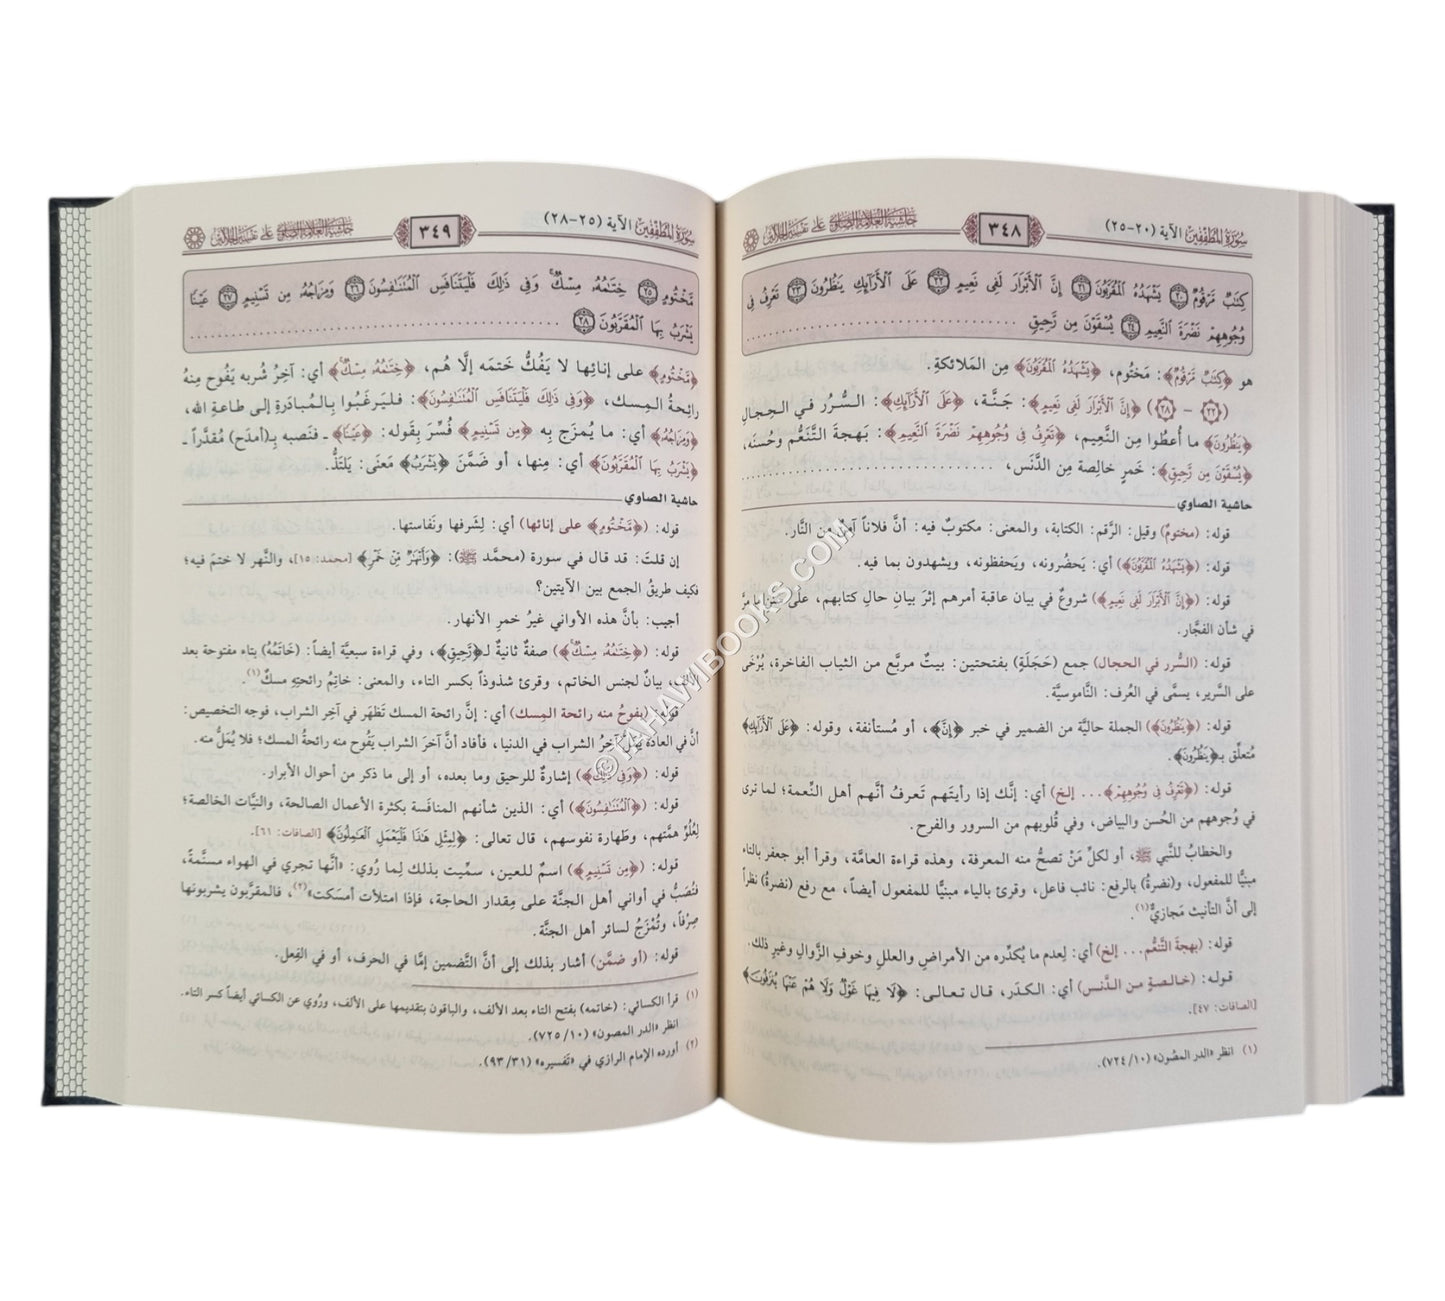 سورة المطففين الآية (٢٠-٢٥)
٣٤٨
حاشية العلامة الصاوي على تفسير الجلالين
كِتَٰبٌ مَّرْقُومٌ ٢٠ يَشْهَدُهُ الْمُقَرَّبُونَ ٢١ إِنَّ الْأَبْرَارَ لَفِى نَعِيمٍ ٢٢ عَلَى الْأَرَآئِكِ يَنظُرُونَ ٢٣ تَعْرِفُ فِى
وُجُوهِهِمْ نَضْرَةَ النَّعِيمِ ٢٤ يُسْقَوْنَ مِن رَّحِيقٍ
هو ﴿كِتَٰبٌ مَّرْقُومٌ﴾: مَختُوم، ﴿يَشْهَدُهُ الْمُقَرَّبُونَ﴾ مِن المَلائكةِ.
(٢٢ - ٢٨) ﴿إِنَّ الْأَبْرَارَ لَفِى نَعِيمٍ﴾: جَنَّة، ﴿عَلَى الْأَرَآئِكِ﴾: السُّرُر في الحِجالِ
﴿يَنظُرُونَ﴾ ما أُعطُوا مِن النَّعِيم، ﴿تَعْرِفُ فِى وُجُوهِهِمْ نَضْرَةَ النَّعِيمِ﴾: بَهجةَ التَّنَعُّمِ وحُسنَه،
﴿يُسْقَوْنَ مِن رَّحِيقٍ﴾: خَمرٍ خالِصة مِن الدَّنَس،
حاشية الصاوي
قوله: (مختومٌ) وقيل: الرَّقم: الكتابة، والمعنى: مكتوبٌ فيه: أنَّ فلاناً آمِنٌ من النَّار.
قوله: (﴿يَشْهَدُهُ الْمُقَرَّبُونَ﴾) أي: يَحضُرونه، ويَحفظونه، ويشهدون بما فيه.
قوله: (﴿إِنَّ الْأَبْرَارَ لَفِى نَعِيمٍ﴾) شروعٌ في بيان عاقبة أمرهم إثرَ بيانِ حالِ كتابهم، على طِبق ما مرَّ
في شأن الفجَّار.
قوله: (السُّرر في الحجال) جمع (حَجَلَةٍ) بفتحتين: بيتٌ مربَّع من الثياب الفاخرة، يُرْخَى
على السَّرير، يسمَّى في العُرف: النَّاموسيَّة.
قوله: (﴿يَنظُرُونَ﴾) الجملة حاليَّة من الضمير في خبر ﴿إِنَّ﴾، أو مُستأنفة، وقوله: ﴿عَلَى الْأَرَآئِكِ﴾
مُتعلِّق بـ﴿يَنظُرُونَ﴾.
قوله: (﴿تَعْرِفُ فِى وُجُوهِهِمْ﴾... إلخ) أي: إنَّك إذا رأيتَهم تَعرفُ أنَّهم أهل النِّعمة؛ لما ترى
في وُجوههم من الحُسن والبياض، وفي قُلوبهم من السرور والفرح.
والخطابُ للنَّبي ﷺ، أو لكلِّ مَنْ تصحُّ منه المعرفة، وهذه قراءة العامَّة، وقرأ أبو جعفر بالتاء
مبنيًّا للمفعول، و(نضرةُ) بالرفع: نائب فاعل، وقرئ بالياء مبنيًّا للمفعول أيضاً، مع رفع (نضرةُ) نظراً
إلى أنَّ التأنيث مَجازيٌّ(١).
قوله: (بهجةَ التَّنعُّم... إلخ) أي: لِعدم ما يُكدِّره من الأمراضِ والعللِ وخوفِ الزَّوالِ وغيرِ ذلك.
قوله: (خالصةٍ من الدَّنس) أي: الكدَر، قال تعالى: ﴿لَا فِيهَا غَوْلٌ وَلَا هُمْ عَنْهَا يُنزَفُونَ﴾
[الصافات: ٤٧].
(١) انظر «الدر المصون» (١٠/ ٧٢٤).
سورة المطففين الآية (٢٥-٢٨)
٣٤٩
حاشية العلامة الصاوي على تفسير الجلالين
مَّخْتُومٍ ٢٥ خِتَٰمُهُۥ مِسْكٌ وَفِى ذَٰلِكَ فَلْيَتَنَافَسِ الْمُتَنَٰفِسُونَ ٢٦ وَمِزَاجُهُۥ مِن تَسْنِيمٍ ٢٧ عَيْنًا
يَشْرَبُ بِهَا الْمُقَرَّبُونَ ٢٨
﴿مَّخْتُومٍ﴾ على إنائِها لا يَفُكُّ خَتمَه إلَّا هُم، ﴿خِتَٰمُهُۥ مِسْكٌ﴾ أي: آخِرُ شُربه يَفُوح مِنهُ
رائِحةُ المِسك، ﴿وَفِى ذَٰلِكَ فَلْيَتَنَافَسِ الْمُتَنَٰفِسُونَ﴾: فليَرغَبُوا بِالمُبادَرةِ إلى طاعةِ الله،
﴿وَمِزَاجُهُۥ﴾ أي: ما يُمزَج بِه ﴿مِن تَسْنِيمٍ﴾ فُسِّرَ بِقَوله: ﴿عَيْنًا﴾ ـ فنَصبه بـ(أمدَح) مُقدَّراً ـ
﴿يَشْرَبُ بِهَا الْمُقَرَّبُونَ﴾ أي: مِنها، أو ضَمَّنَ ﴿يَشْرَبُ﴾ مَعنَى: يَلتَذُّ.
حاشية الصاوي
قوله: (﴿مَّخْتُومٍ﴾ على إنائها) أي: لِشَرفها ونَفاستها.
إن قلتَ: قد قال في سورة (محمَّد ﷺ): ﴿وَأَنْهَٰرٌ مِّنْ خَمْرٍ﴾ [محمد: ١٥]، والنَّهر لا ختمَ فيه؛
فكيف طريقُ الجمع بين الآيتين؟
أجيب: بأنَّ هذه الأواني غيرُ خمرِ الأنهار.
قوله: (﴿خِتَٰمُهُۥ مِسْكٌ﴾) صفةٌ ثانيةٌ لـ﴿رَّحِيقٍ﴾، وفي قراءة سبعيَّة أيضاً: (خَاتَمُهُ) بتاء مفتوحة بعد
ألف، بيانٌ لجنس الخاتم، وقرئ شذوذاً بكسر التاء، والمعنى: خاتِمُ رائحتِهِ مسكٌ(١).
قوله: (يفوحُ منه رائحة المِسك) أي: إنَّ رائحة المسك تَظهَر في آخِر الشراب، فوجه التخصيص:
أنَّ في العادة يُمَلُّ آخرُ الشراب في الدنيا، فأفاد أنَّ آخرَ الشراب يَفُوح منه رائحةُ المسك؛ فلا يُمَلُّ منه.
قوله: (﴿وَفِى ذَٰلِكَ﴾) إشارةٌ للرحيق وما بعده، أو إلى ما ذكر من أحوال الأبرار.
قوله: (﴿الْمُتَنَٰفِسُونَ﴾) أي: الذين شأنهم المنافَسة بكثرة الأعمال الصالحة، والنيَّات الخالصة؛
لِعُلُوِّ همَّتهم، وطَهارة نفوسهم، قال تعالى: ﴿لِمِثْلِ هَٰذَا فَلْيَعْمَلِ الْعَٰمِلُونَ﴾ [الصافات: ٦١].
قوله: (﴿مِن تَسْنِيمٍ﴾) اسمٌ للعين، سمِّيت بذلك لِما رُوي: «أنَّها تجري في الهواء مسنَّمةً،
فتُصَبُّ في أواني أهل الجنَّة على مِقدار الحاجة، فإذا امتلأت أمسَكت»(٢)، فالمقرَّبون يشربونها
صِرْفاً، وتُمْزَجُ لسائر أهل الجنَّة.
قوله: (أو ضمَّن) أشار بذلك إلى أنَّ التَّضمين إمَّا في الحرف، أو في الفِعل.
(١) قرأ الكسائي: (خاتمه) بفتح التاء بعد الألف، والباقون بتقديمها على الألف، ورُوي عن الكسائي أيضاً كسر التاء.
انظر «الدر المصون» (١٠/ ٧٢٥).
(٢) أورده الإمام الرازي في «تَفسيره» (٣١/ ٩٣).
© TAHAWIBOOKS.COM